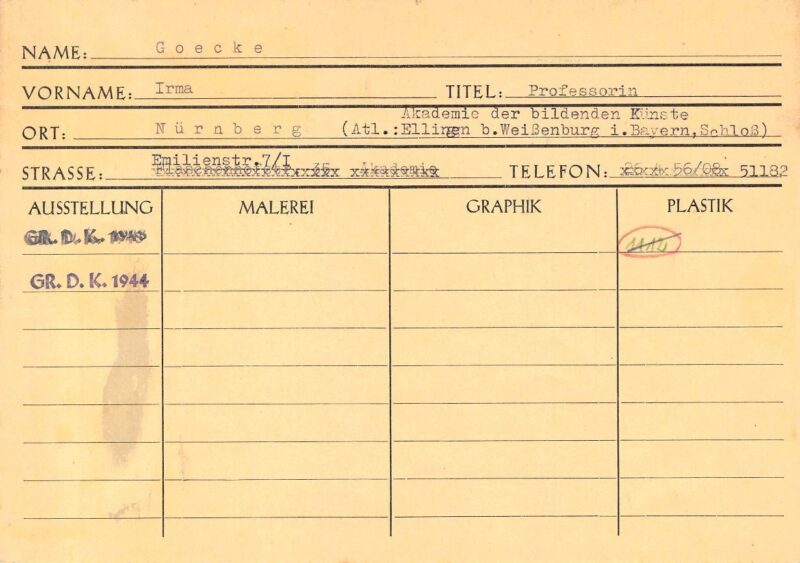 NAME: Goecke
VORNAME: Irma TITEL: Professorin
Akademie der bildenden Künste
ORT: Nürnberg (Atl.:Ellingen b.Weißenburg i.Bayern,Schloß)
Emilienstr.7/I
STRASSE: 35 Akademie TELEFON: 56/08 51182
AUSSTELLUNG MALEREI GRAPHIK PLASTIK
GR. D. K. 1943 1112
GR. D. K. 1944